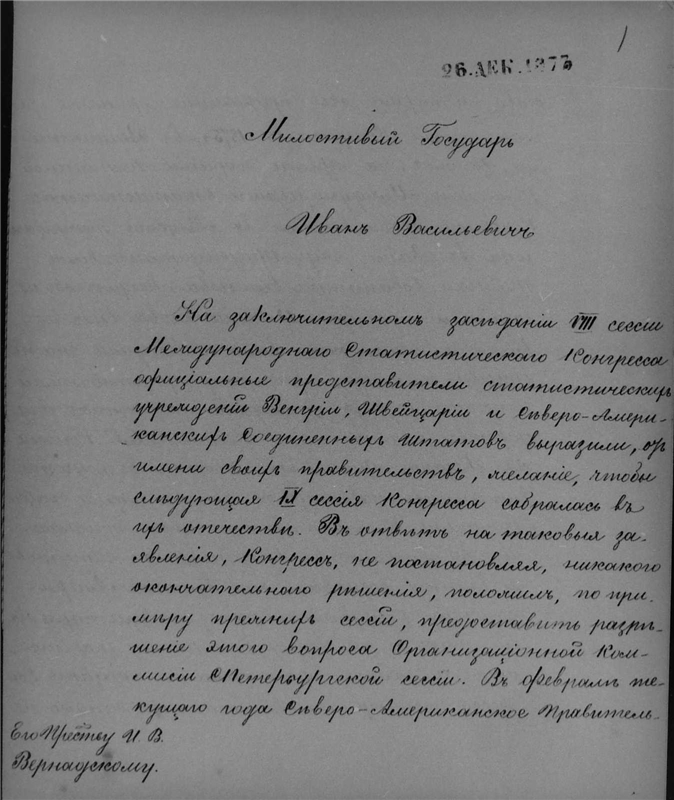 1
26.ДЕК.1875
Милостивый Государь
Иванъ Васильевичъ
На заключительномъ засѣданіи VIII сессіи
Международнаго Статистическаго Конгресса
официальные представители статистическихъ
учрежденій Венгріи, Швейцаріи и Сѣверо-Амери-
канскихъ Соединенныхъ Штатовъ выразили, отъ
имени своихъ правительствъ, желаніе, чтобы
слѣдующая IX сессія Конгресса собралась въ
ихъ отечествѣ. Въ отвѣтъ на таковыя за-
явленія, Конгрессъ, не постановляя, никакого
окончательнаго рѣшенія, положилъ, по при-
мѣру прежнихъ сессій, предоставить разрѣ-
шеніе этого вопроса Организаціонной Ком-
мисіи СПетербургской сессіи. Въ февралѣ те-
кущаго года Сѣверо-Американское Правитель-
Его Прeвству И. В.
Вернадскому.